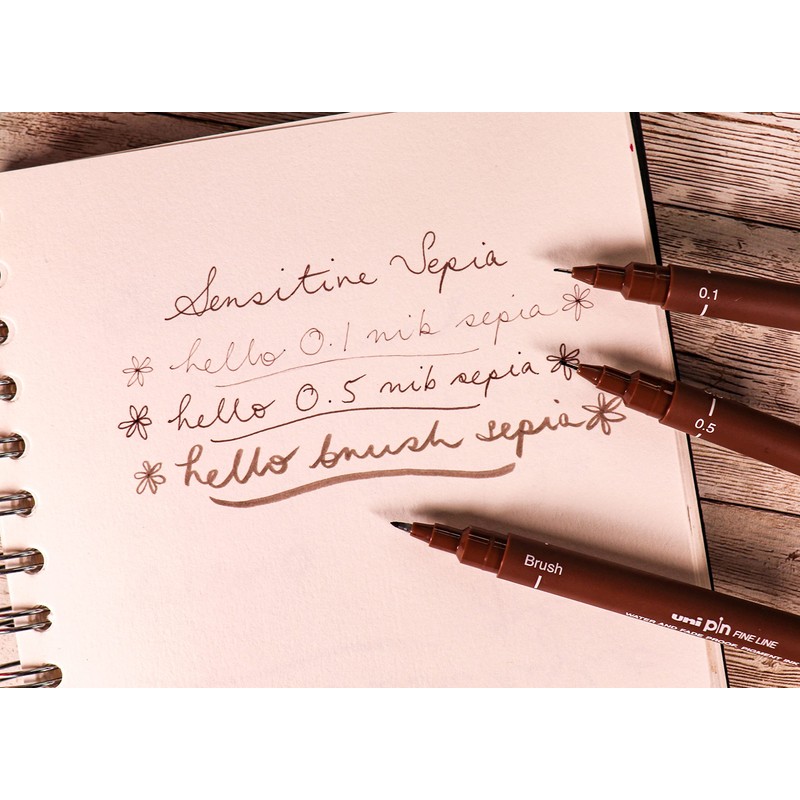 Sensitive Sepia
hello 0.1 nib sepia
hello 0.5 nib sepia
hello brush sepia
0.1
0.5
Brush
uni pin FINE LINE
WATER AND FADE PROOF, PIGMENT INK